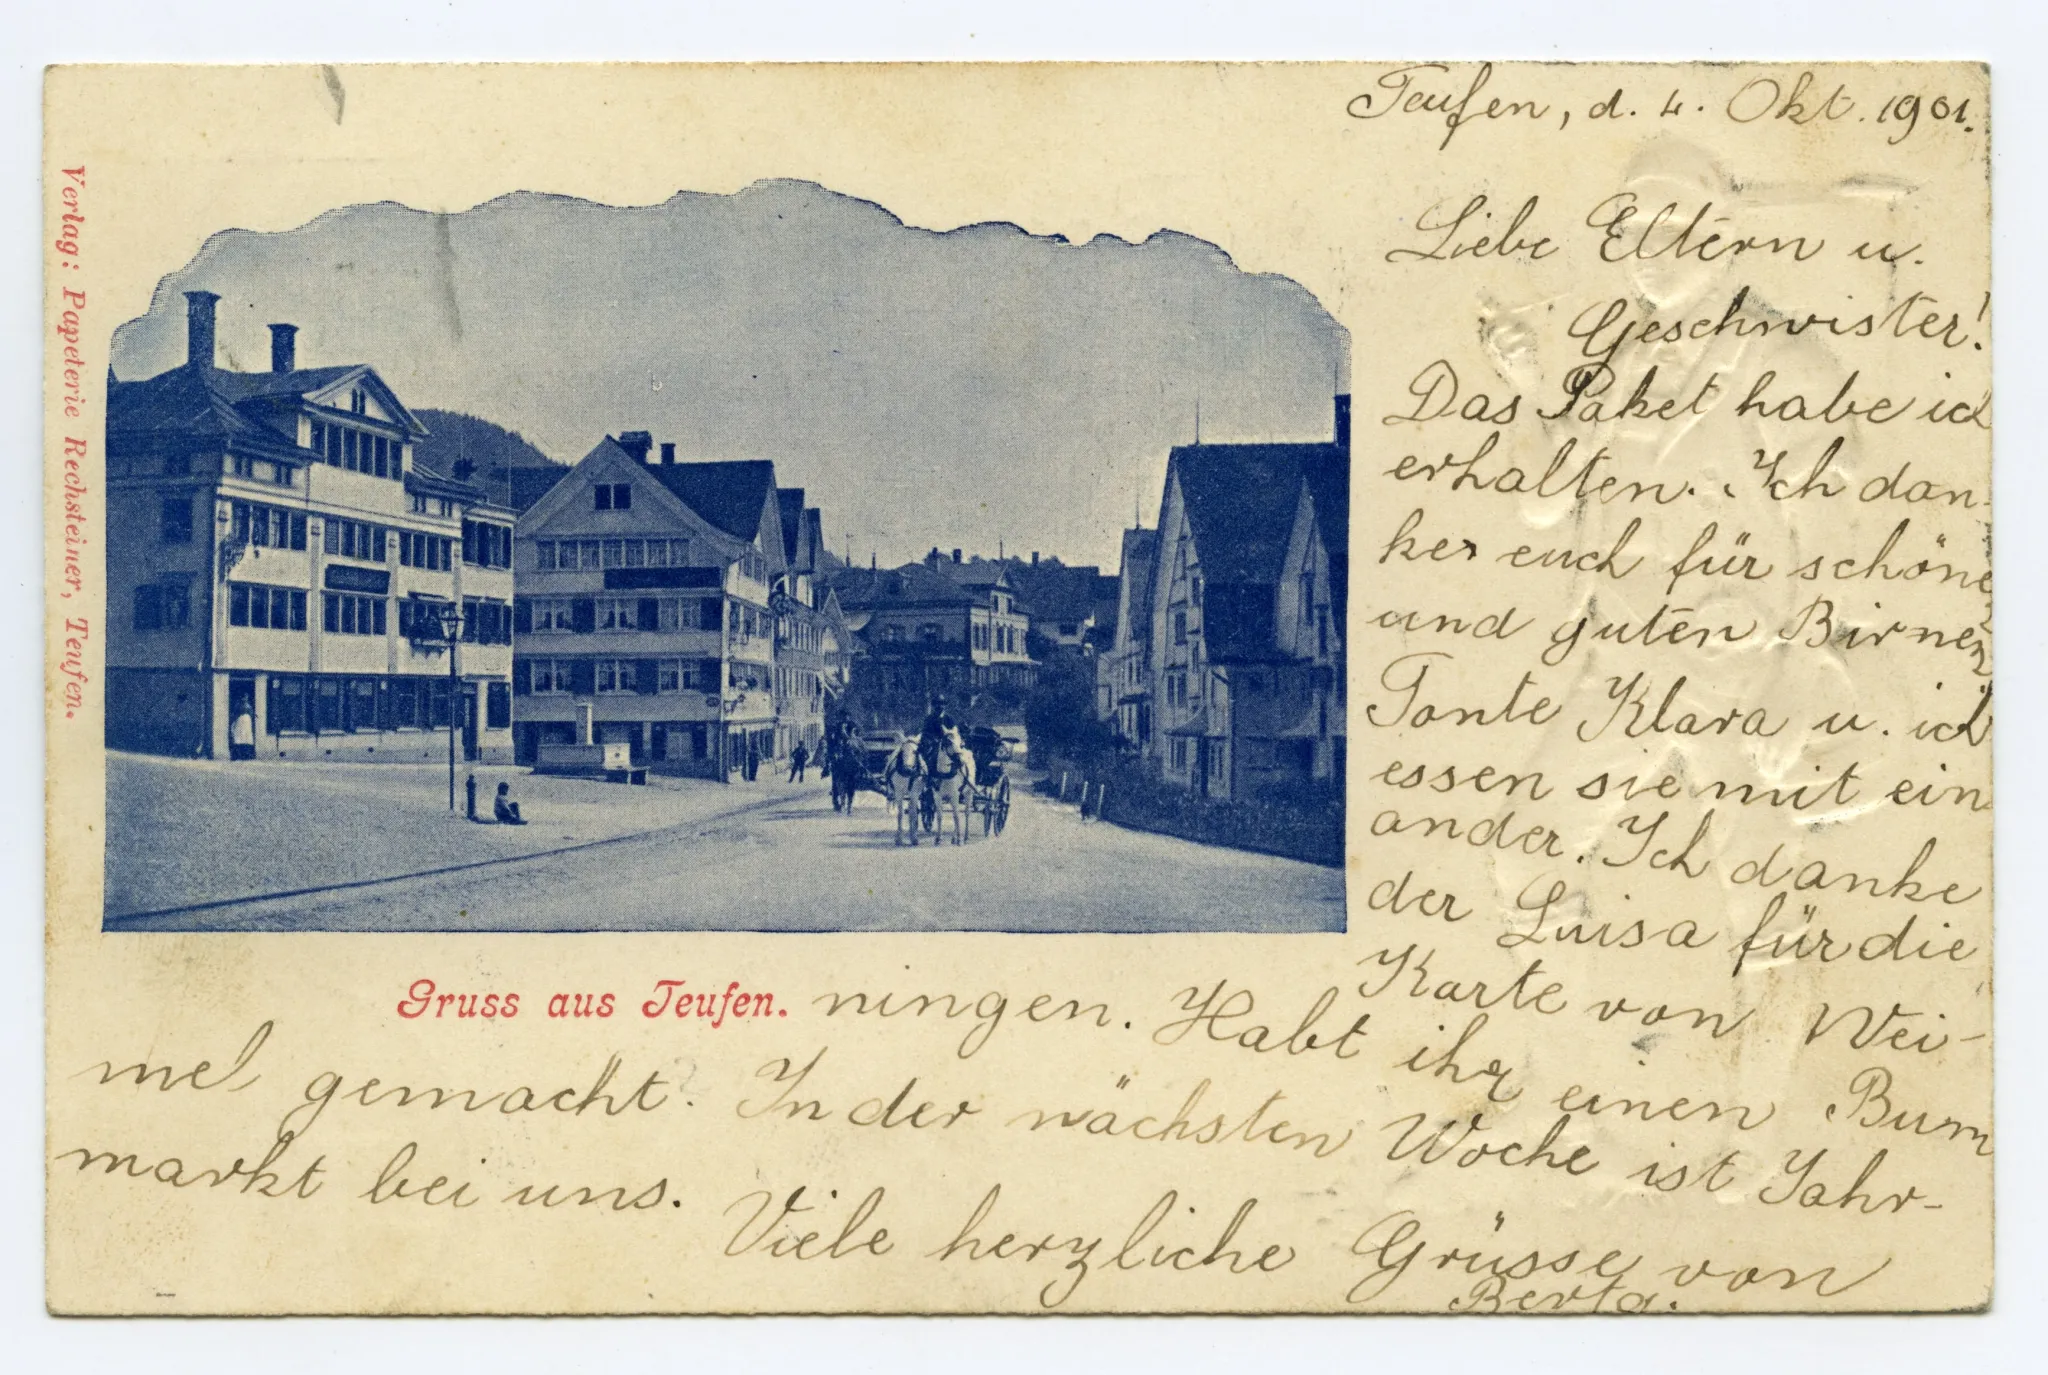 Verlag: Papeterie Rechsteiner, Teufen.
Teufen, d. 4. Okt. 1901.
Liebe Eltern u.
Geschwister!
Das Paket habe ich
erhalten. Ich dan-
ke euch für schöne
und guten Birnen
Tante Klara u. ich
essen sie mit ein
ander. Ich danke
der Luisa für die
Karte von Wei-
Gruss aus Teufen.
ningen. Habt ihr einen Bum
mel gemacht? In der nächsten Woche ist Jahr-
markt bei uns. Viele herzliche Grüsse von
Berta.